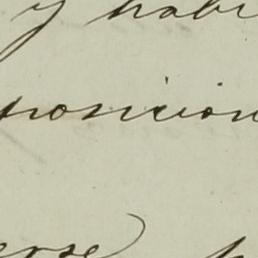 y habi
posicion
erse